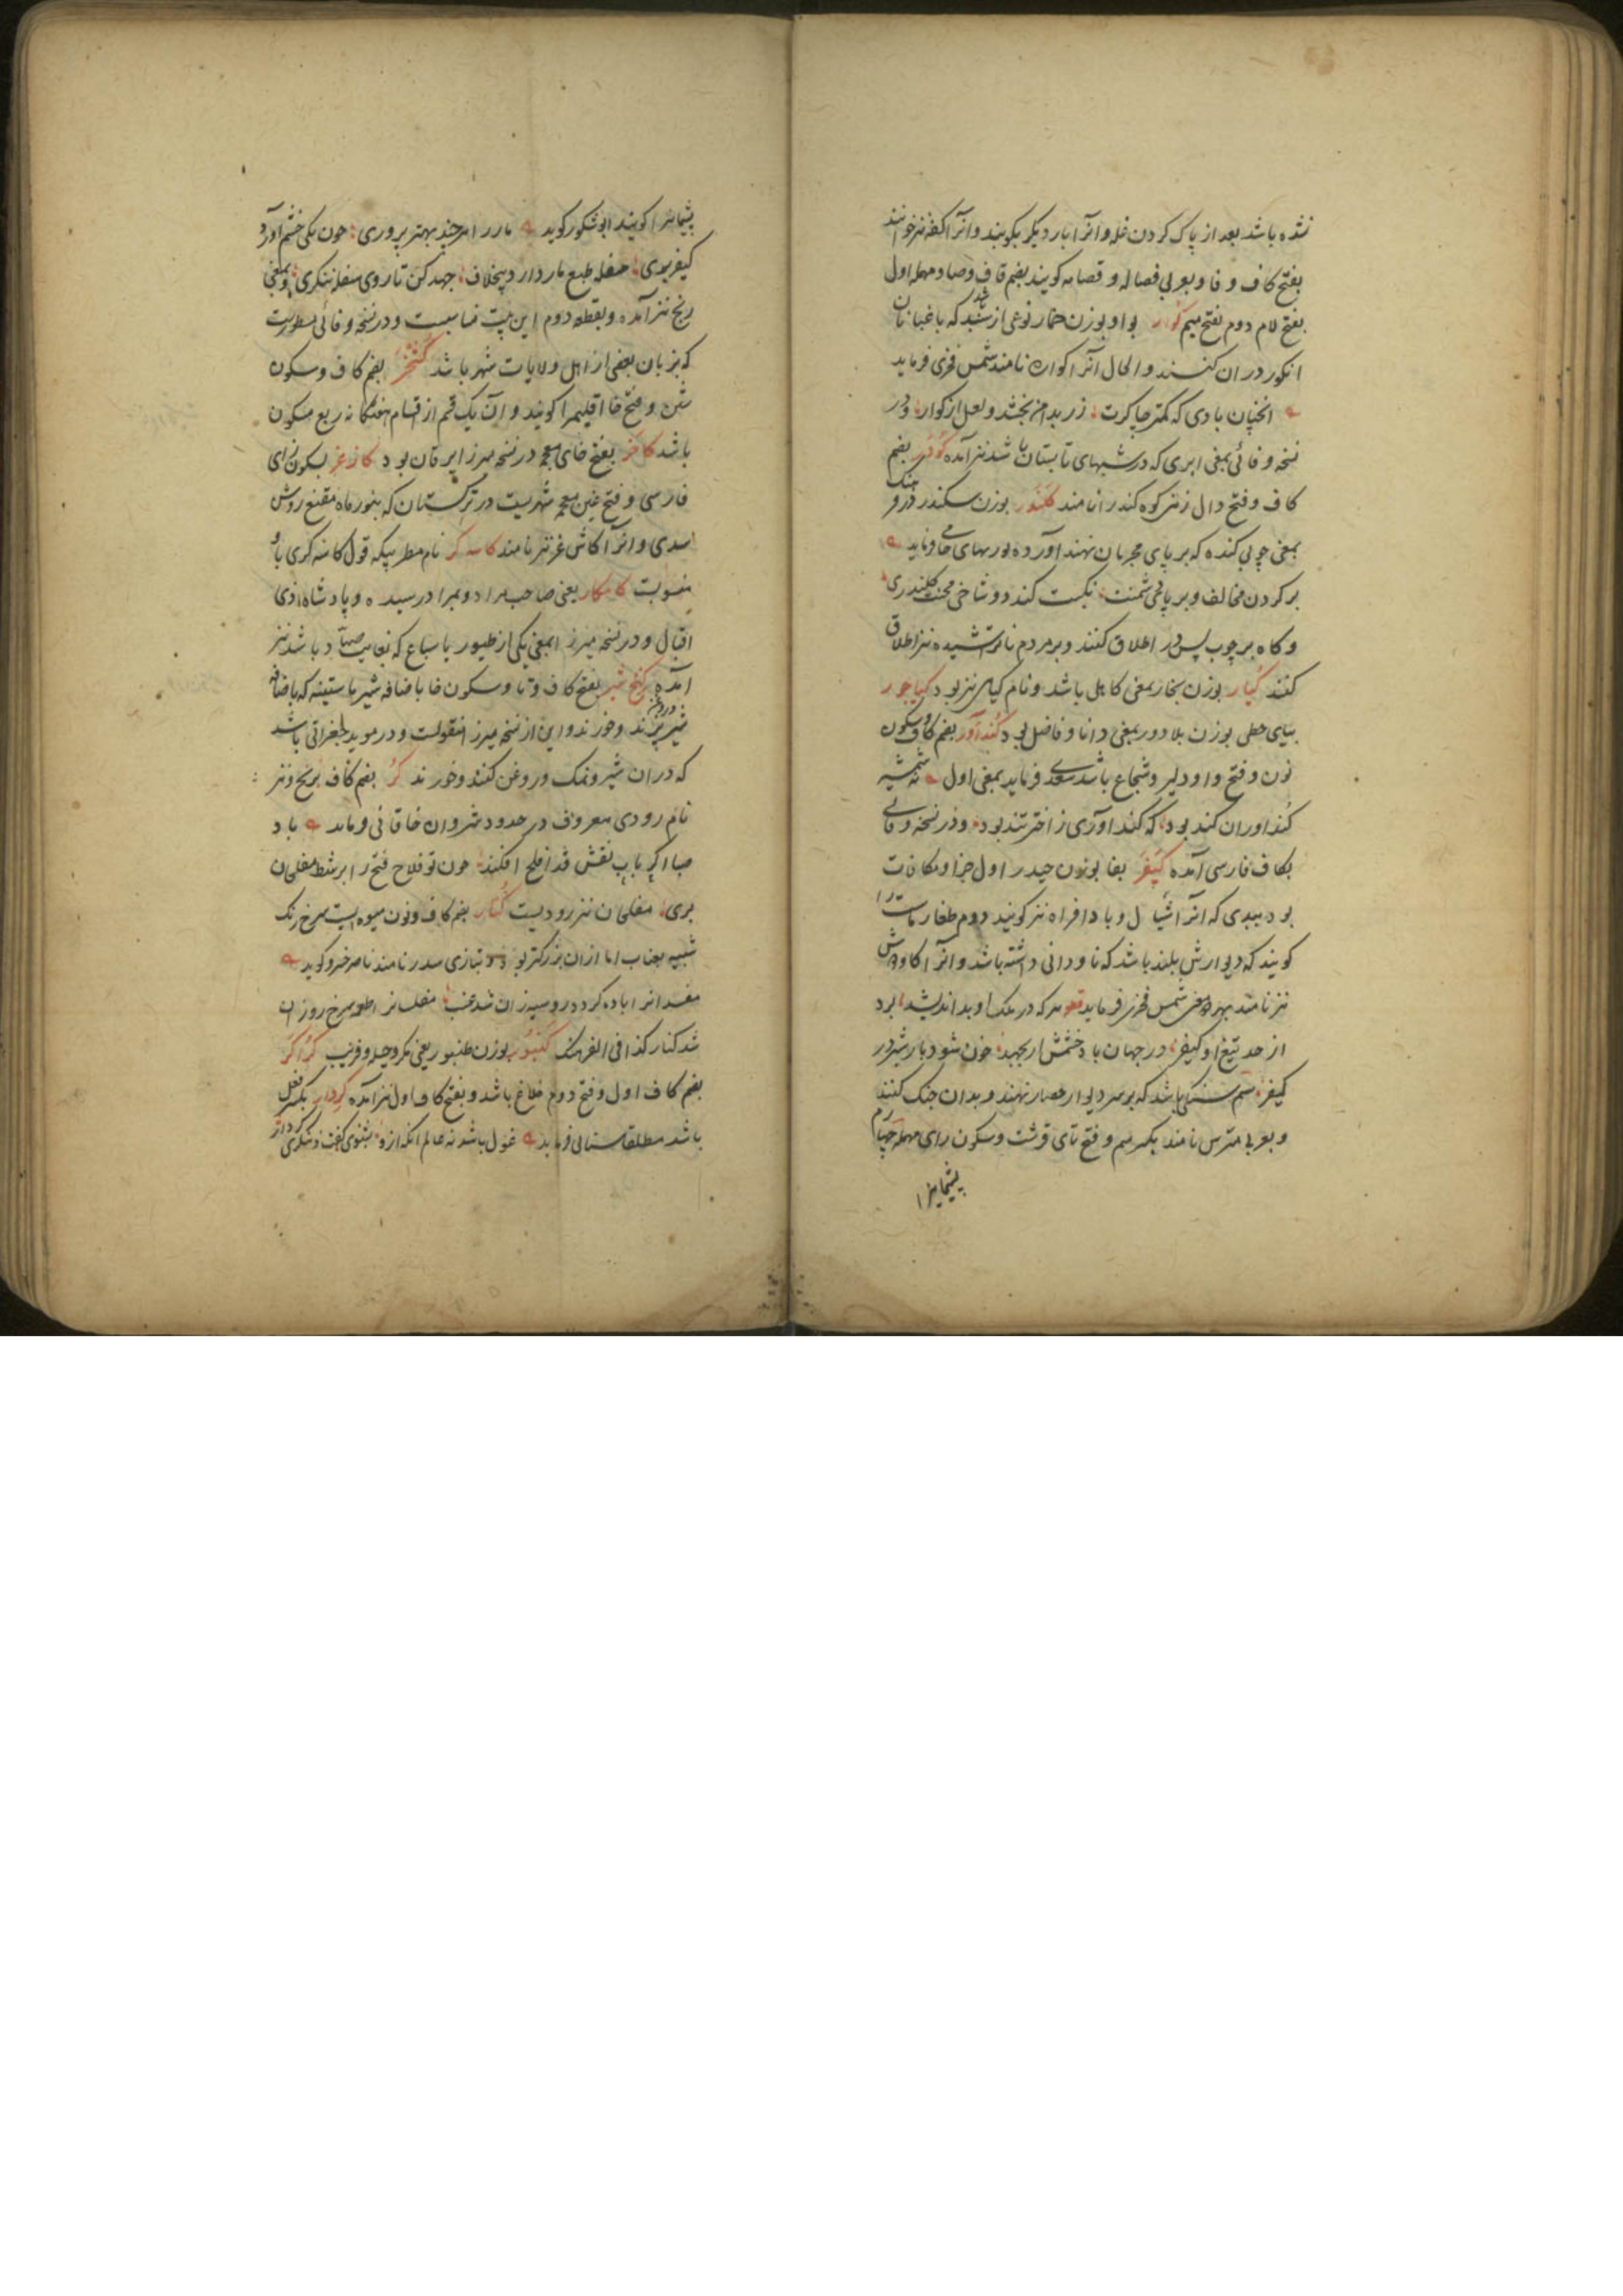 نشده باشد بعد از پاک کردن غله و آنرا بار دیکر بکوبند و آنرا کفه نیز خوانند
بفتح کاف و فا و بعربی قصاله و قصامه کویند بضم قاف و صاد مهمله اول
بفتح لام دوم بفتح میم کوار بواو بوزن خمار نوعی از سبد که باغبانان
انکور در ان کنند و الحال آنرا کواره نامند شمس فخری فرماید
انجنان بادی که کمتر چاکرت زر بدامن بخشد و لعل از کوار و در
نسخه وفائی بمعنی ابری که در شبهای تابستان باشد نیز آمده کودر بضم
کاف و فتح دال زنر کوه کندر را نامند کلندر بوزن سکندر در فرهنک
بمعنی چوبی کنده که بر پای مجرمان نهند آورده پوربهای جامی فرماید
بر کردن مخالف و بر پای دشمنت نکبت کند دو شاخی محنت کلندری
و کاه بر چوب پس در اطلاق کنند و بر مردم ناتراشیده نیز اطلاق
کنند کیار بوزن بخار بمعنی کاهلی باشد و نام کیاهی نیز بود کیاجور
بیای حطی بوزن بلادور بمعنی دانا و فاضل بود کنداور بضم کاف و سکون
نون و فتح واو دلیر و شجاع باشد سعدی فرماید بمعنی اول نه شمشیر
کنداوران کند بود که کنداوری ز اختر تند بود و در نسخه وفائی
بکاف فارسی آمده کیفر بفا بوزن حیدر اول جزا و مکافات
بود ببدی که آنرا و بادافراه نیز کویند دوم طغار ماست را
کویند که دیوارش بلند باشد که ناودانی داشته باشد و آنرا کاودوش
نیز نامند بهر دو معنی شمس فخری فرماید هر که در ملک او بد اندیشد برد
از حد تیغ او کیفر در جهان باد خشمش ار بجهد خون شود باز شیر در
کیفر سیم سنکی باشد که بر سر دیوار حصار نهند و بدان جنک کنند
و بعربی مترس نامند بکسر میم و فتح تای قرشت و سکون رای مهمله چهارم
پشیمانیرا
پشیمانیرا کویند ابوشکور کوید مار را هر چند بهتر پروری چون یکی خشم آورد
کیفر بری سفله طبع مار دارد بیخلاف جهد کن تا روی سفله ننکری و بمعنی
رنج نیز آمده و بقطه دوم این بیت مناسبست و در نسخه وفائی مسطورست
که بزبان بعضی از اهل ولایات شهر باشد کشخر بضم کاف و سکون
شین و فتح خا اقلیمرا کویند و آن یک قسم از اقسام هفتکانه ربع مسکون
باشد کاخر بفتح خای معجمه در نسخه میرزا یرقان بود کاژغر بسکون زای
فارسی و فتح غین معجمه شهریست در ترکستان که بنور ماه مقنع روشن
شدی و آنرا کاشغر نیز نامند کاسه کر نام مطربیکه قول کاسه کری باو
منسوبست کامکار یعنی صاحب مراد و بمراد رسیده و پادشاه ذی
اقبال و در نسخه میرزا بمعنی یکی از طیور یا سباع که بغایت صیاد باشد نیز
آمده کتخ شیر بفتح کاف و تا و سکون خا باضافه شیر ماستینه که باضافه
شیر پزند و خورند و این از نسخه میرزا منقولست و در موید جغراتی باشد
که در ان شیر و نمک و روغن کنند و خورند کر بضم کاف برنج و نیز
نام رودی معروف در حدود شروان خاقانی فرماید باد
صبا اکر بآب نقش قد افلح افکند چون تو فلاح فتح را بر شط مفلحان
بری مفلحان نیز رودیست کنار بضم کاف و نون میوه ایست سرخ رنک
شبیه بعناب اما از ان بزرکتر بود و بتازی سدر نامند ناصر خسرو کوید
شد کنار کذا فی الفرهنک کنبور بوزن طنبور یعنی مکر و حیله و فریب کراکر
بضم کاف اول و فتح دوم کلاغ باشد و بفتح کاف اول نیز آمده کردار بکسر فعل
باشد مطلقا سنائی فرماید غول باشد نه عالم آنکه ازو بشنوی کفت و نشنوی کردار